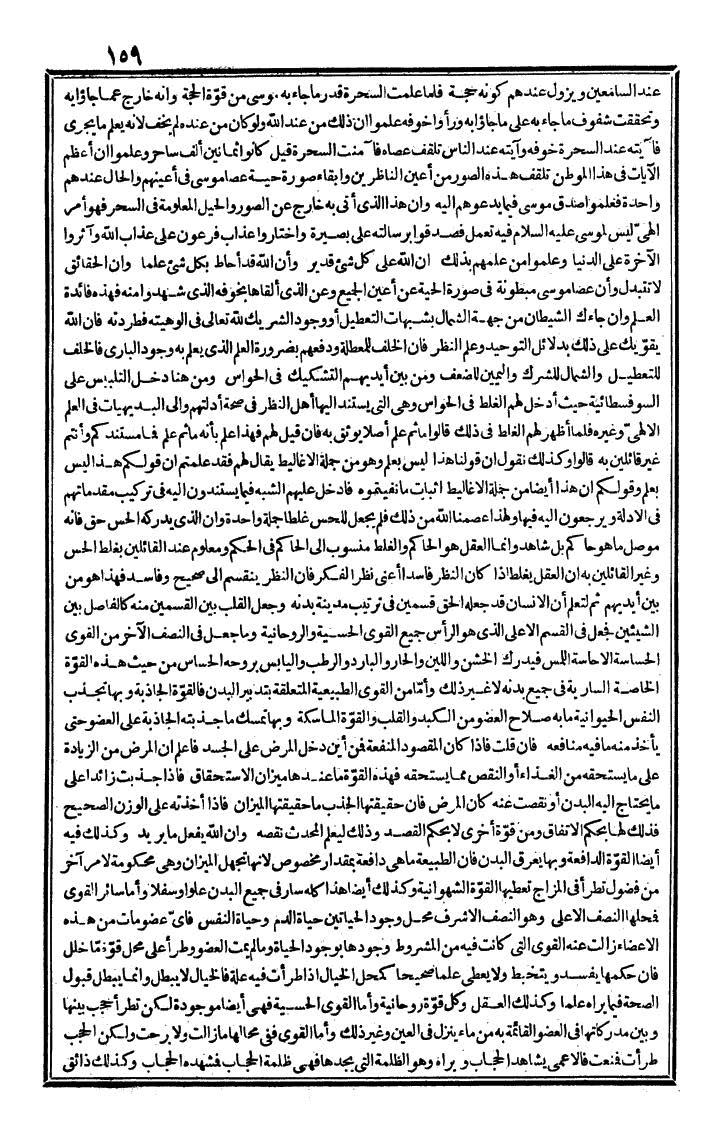 ١٥٩
عند السامعين ويزول عندهم كونه حجة فلما علمت السحرة قدر ما جاء به موسى من قوّة الحجة وانه خارج عما جاؤا به
وتحققت شفوف ما جاء به على ما جاؤا به ورأوا خوفه علموا ان ذلك من عند الله ولو كان من عنده لم يخف لانه يعلم ما يجرى
فآيته عند السحرة خوفه وآيته عند الناس تلقف عصاه فآمنت السحرة قيل كانوا ثمانين ألف ساحر وعلموا ان أعظم
الآيات فى هذا الموطن تلقف هذه الصور من أعين الناظرين وابقاء صورة حية عصا موسى فى أعينهم والحال عندهم
واحدة فعلموا صدق موسى فيما يدعوهم اليه وان هذا الذى أتى به خارج عن الصور والحيل المعلومة فى السحر فهو أمر
الهىّ ليس لموسى عليه السلام فيه تعمل فصدقوا برسالته على بصيرة واختاروا عذاب فرعون على عذاب الله وآثروا
الآخرة على الدنيا وعلموا من علمهم بذلك ان الله على كل شئ قدير وأن الله قد أحاط بكل شئ علما وان الحقائق
لا تتبدل وأن عصا موسى مبطونة فى صورة الحية عن أعين الجميع وعن الذى ألقاها بخوفه الذى شهدوا منه فهذه فائدة
العلم وان جاءك الشيطان من جهة الشمال بشبهات التعطيل أو وجود الشريك لله تعالى فى الوهيته فطردته فان الله
يقوّيك على ذلك بدلائل التوحيد وعلم النظر فان الخلف للمعطلة ودفعهم بضرورة العلم الذى يعلم به وجود البارى فالخلف
للتعطيل والشمال للشرك واليمين للضعف ومن بين أيديهم التشكيك فى الحواس ومن هنا دخل التلبيس على
السوفسطائية حيث أدخل لهم الغلط فى الحواس وهى التى يستند اليها أهل النظر فى صحة أدلتهم والى البديهيات فى العلم
الالهىّ وغيره فلما أظهر لهم الغلط فى ذلك قالوا ما ثم علم أصلا يوثق به فان قيل لهم فهذا علم بأنه ما ثم علم فما مستندكم وأنتم
غير قائلين به قالوا وكذلك نقول ان قولنا هذا ليس بعلم وهو من جملة الاغاليط يقال لهم فقد علمتم ان قولكم هذا ليس
بعلم وقولكم ان هذا أيضا من جملة الاغاليط اثبات ما نفيتموه فادخل عليهم الشبه فيما يستندون اليه فى تركيب مقدماتهم
فى الادلة ويرجعون اليه فيها ولهذا عصمنا الله من ذلك فلم يجعل للحس غلطا جملة واحدة وان الذى يدركه الحس حق فانه
موصل ما هو حاكم بل شاهد وانما العقل هو الحاكم والغلط منسوب الى الحاكم فى الحكم ومعلوم عند القائلين بغلط الحس
وغير القائلين به ان العقل يغلط اذا كان النظر فاسدا أعنى نظر الفكر فان النظر ينقسم الى صحيح وفاسد فهذا هو من
بين أيديهم ثم لتعلم أن الانسان قد جعله الحق قسمين فى ترتيب مدينة بدنه وجعل القلب بين القسمين منه كالفاصل بين
الشيئين فجعل فى القسم الاعلى الذى هو الرأس جميع القوى الحسية والروحانية وما جعل فى النصف الآخر من القوى
الحساسة الا حاسة اللمس فيدرك الخشن واللين والحار والبارد والرطب واليابس بروحه الحساس من حيث هذه القوّة
الخاصة السارية فى جميع بدنه لا غير ذلك وأمّا من القوى الطبيعية المتعلقة بتدبير البدن فالقوّة الجاذبة وبها تجذب
النفس الحيوانية ما به صلاح العضو من الكبد والقلب والقوّة الماسكة وبها تمسك ما جذبته الجاذبة على العضو حتى
يأخذ منه ما فيه منافعه فان قلت فاذا كان المقصود المنفعة فمن أين دخل المرض على الجسد فاعلم ان المرض من الزيادة
على ما يستحقه من الغذاء أو النقص مما يستحقه فهذه القوّة ما عندها ميزان الاستحقاق فاذا جذبت زائدا على
ما يحتاج اليه البدن أو نقصت عنه كان المرض فان حقيقتها الجذب ما حقيقتها الميزان فاذا أخذته على الوزن الصحيح
فذلك لها بحكم الاتفاق ومن قوّة أخرى لا بحكم القصد وذلك ليعلم المحدث نقصه وان الله يفعل ما يريد وكذلك فيه
أيضا القوّة الدافعة وبها يعرق البدن فان الطبيعة ما هى دافعة بمقدار مخصوص لانها تجهل الميزان وهى محكومة لامر آخر
من فضول تطرأ فى المزاج تعطيها القوّة الشهوانية وكذلك أيضا هذا كله سار فى جميع البدن علوا وسفلا وأما سائر القوى
فمحلها النصف الاعلى وهو النصف الاشرف محل وجود الحياتين حياة الدم وحياة النفس فاىّ عضو مات من هذه
الاعضاء زالت عنه القوى التى كانت فيه من المشروط وجودها بوجود الحياة وما لم يمت العضو وطرأ على محل قوّة مّا خلل
فان حكمها يفسد ويتخبط ولا يعطى علما صحيحا كمحل الخيال اذا طرأت فيه علة فالخيال لا يبطل وانما يبطل قبول
الصحة فيما يراه علما وكذلك العقل وكل قوّة روحانية وأما القوى الحسية فهى أيضا موجودة لكن تطرأ حجب بينها
وبين مدركاتها فى العضو القائمة به من ماء ينزل فى العين وغير ذلك وأما القوى ففى محالها ما زالت ولا برحت ولكن الحجب
طرأت فمنعت فالاعمى يشاهد الحجاب ويراه وهو الظلمة التى يجدها فهى ظلمة الحجاب فشهده الحجاب وكذلك ذائق